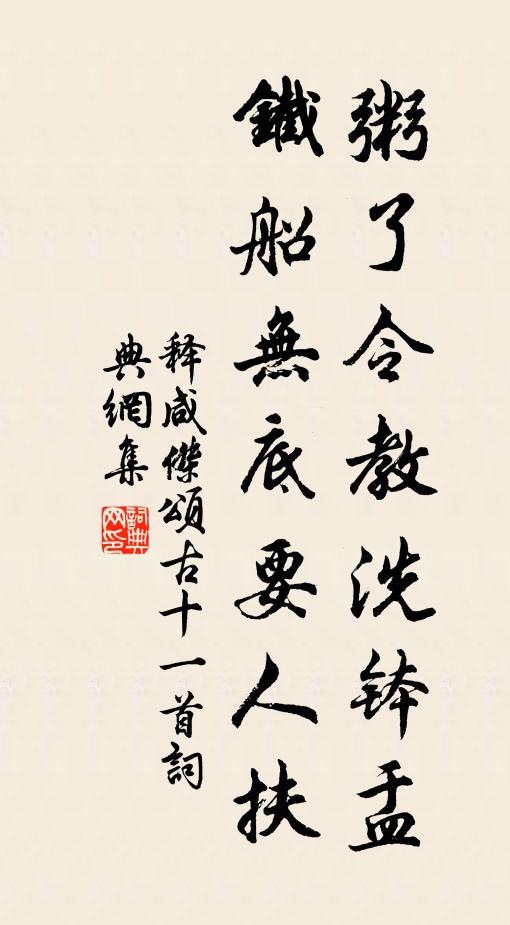 粥了令教洗鉢盂
鐵船無底要人扶
釋咸傑頌古十一首詞
典網集
詞典網印